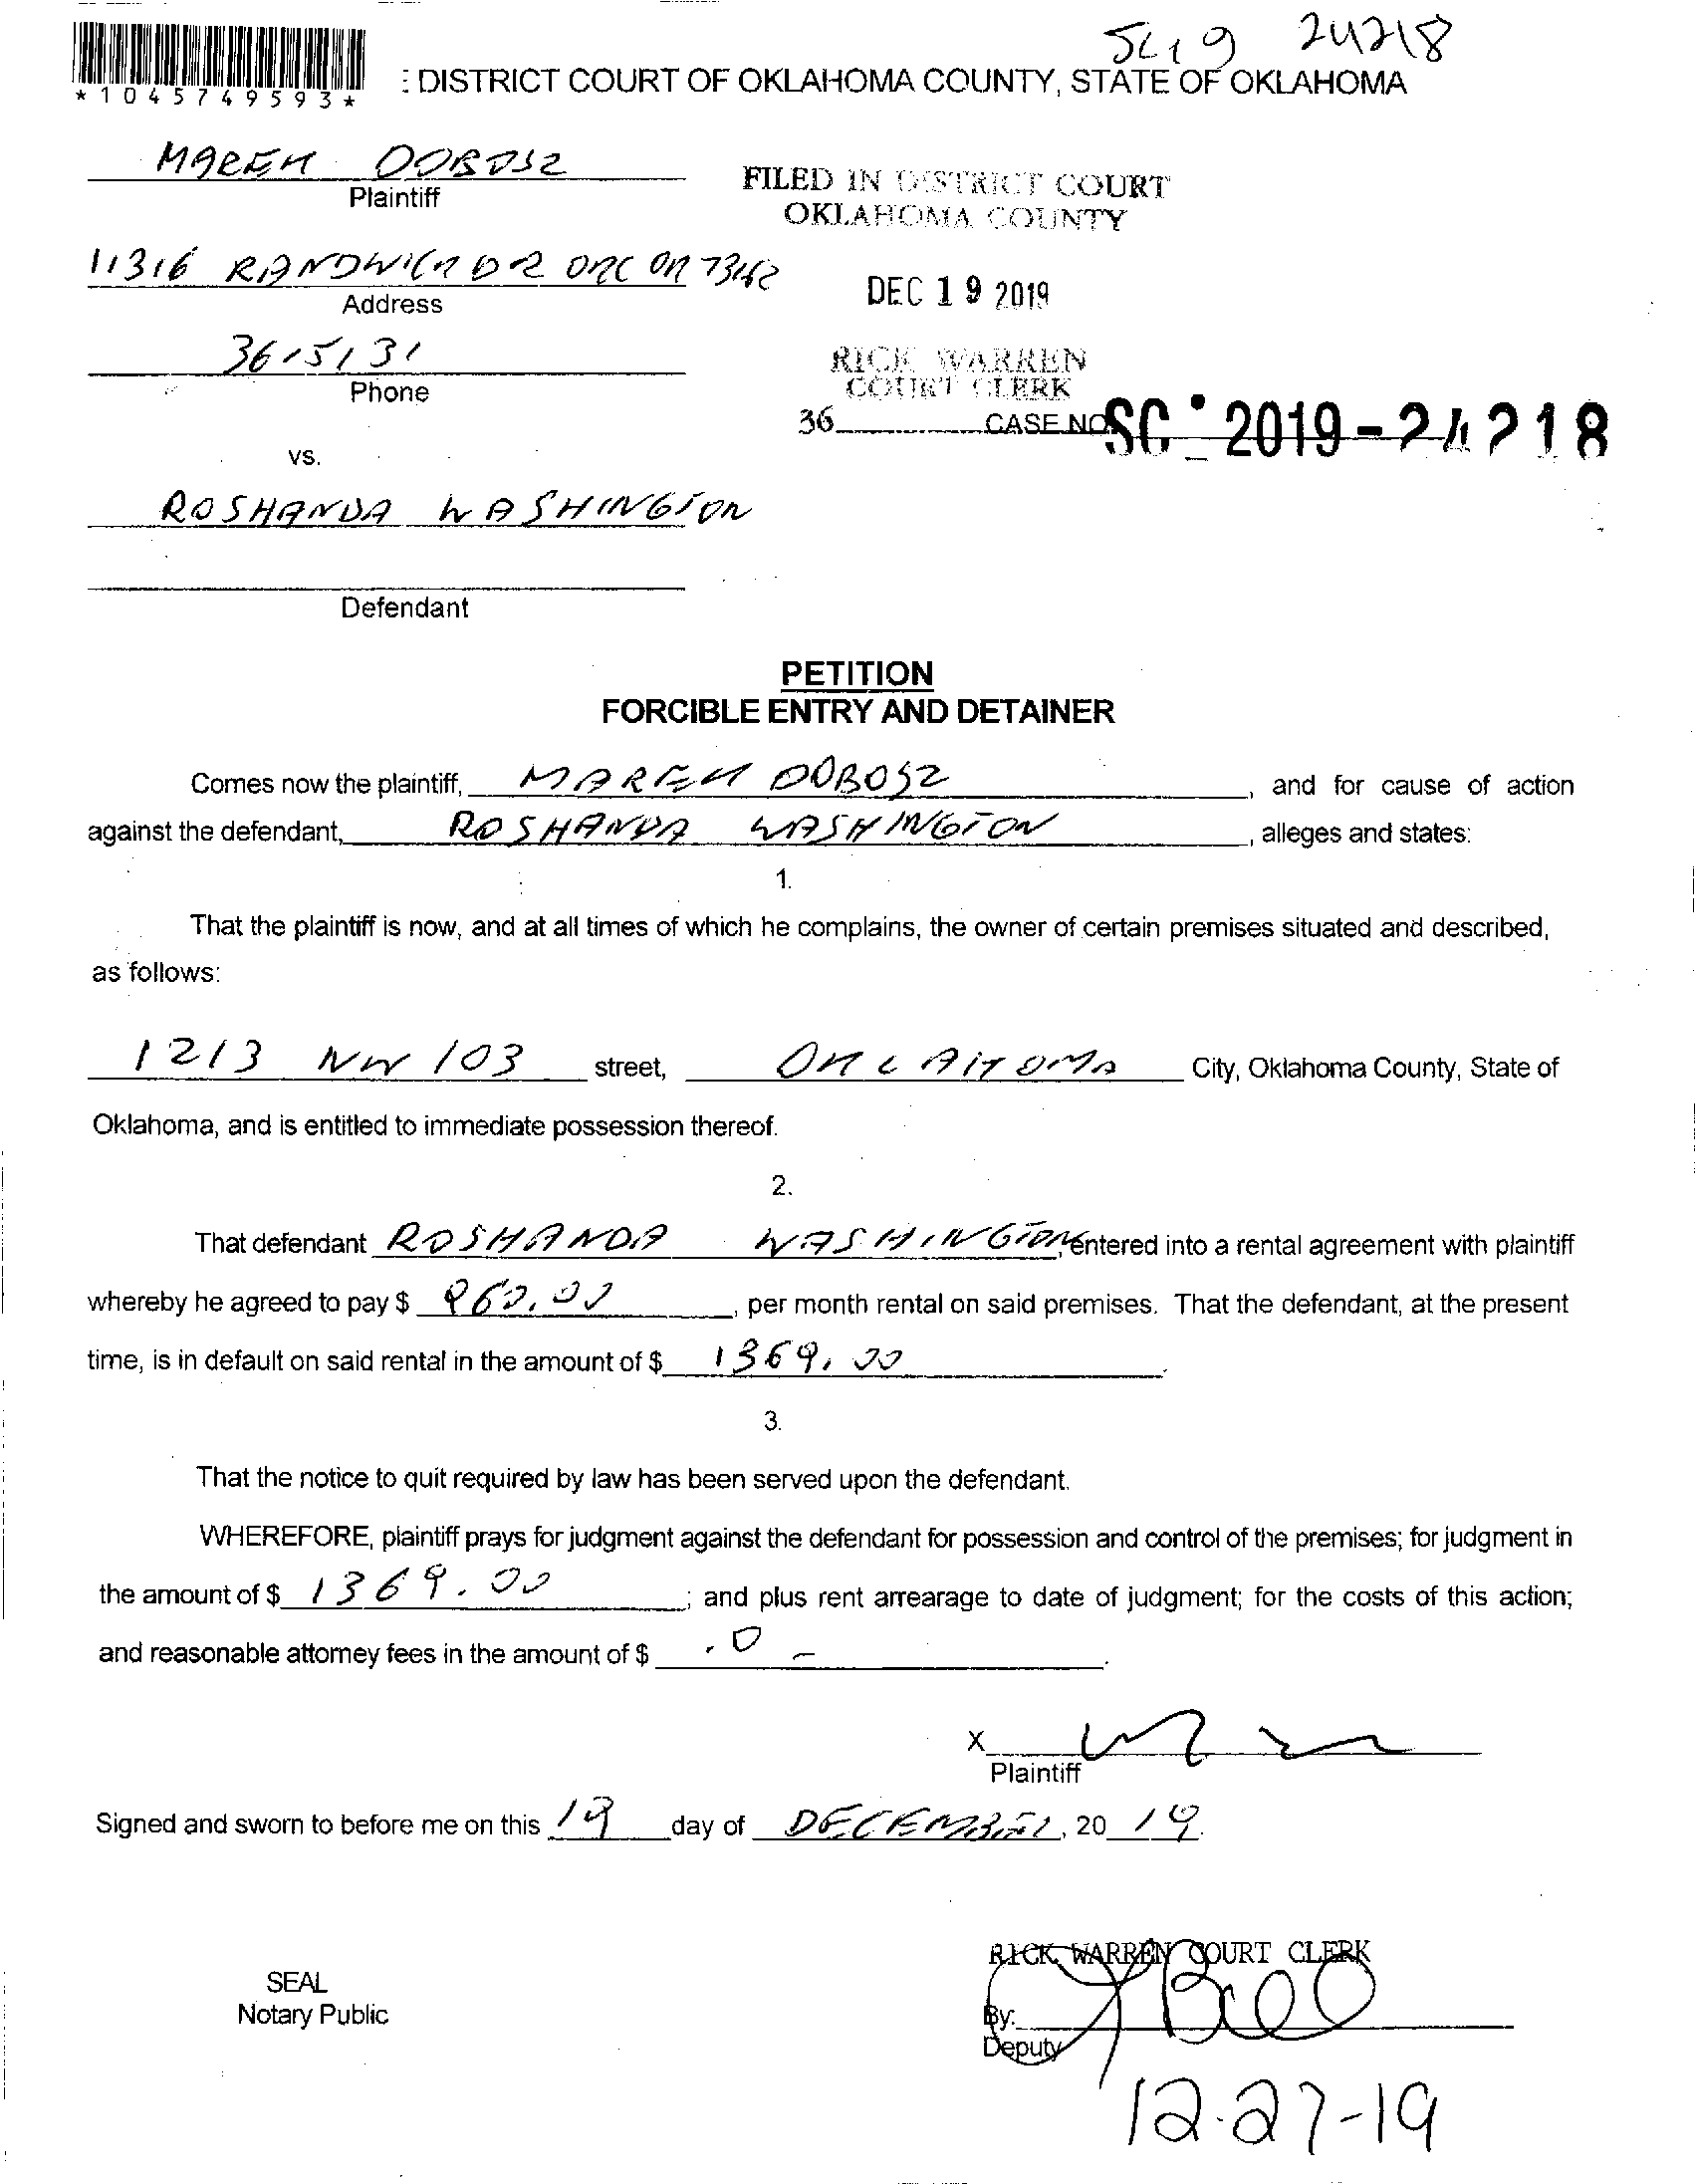 SC19 24218
*1045749593*
: DISTRICT COURT OF OKLAHOMA COUNTY, STATE OF OKLAHOMA
MAREK DOBOSZ
Plaintiff
FILED IN DISTRICT COURT
OKLAHOMA COUNTY
11316 RANDWICK DR OKC OK 73162
Address
DEC 19 2019
3615131
Phone
RICK WARREN
COURT CLERK
36 CASE NO. SC-2019-24218
vs.
ROSHANDA WASHINGTON
Defendant
PETITION
FORCIBLE ENTRY AND DETAINER
Comes now the plaintiff, MAREK DOBOSZ, and for cause of action
against the defendant, ROSHANDA WASHINGTON, alleges and states:
1.
That the plaintiff is now, and at all times of which he complains, the owner of certain premises situated and described,
as follows:
1213 NW 103 street, OKLAHOMA City, Oklahoma County, State of
Oklahoma, and is entitled to immediate possession thereof.
2.
That defendant ROSHANDA WASHINGTON, entered into a rental agreement with plaintiff
whereby he agreed to pay $ , per month rental on said premises. That the defendant, at the present
time, is in default on said rental in the amount of $ 1369.00.
3.
That the notice to quit required by law has been served upon the defendant.
WHEREFORE, plaintiff prays for judgment against the defendant for possession and control of the premises; for judgment in
the amount of $ 1369.00; and plus rent arrearage to date of judgment; for the costs of this action;
and reasonable attorney fees in the amount of $ -0-.
X
Plaintiff
Signed and sworn to before me on this 19 day of DECEMBER, 2019.
RICK WARREN COURT CLERK
SEAL
Notary Public
By:
Deputy
12-27-19